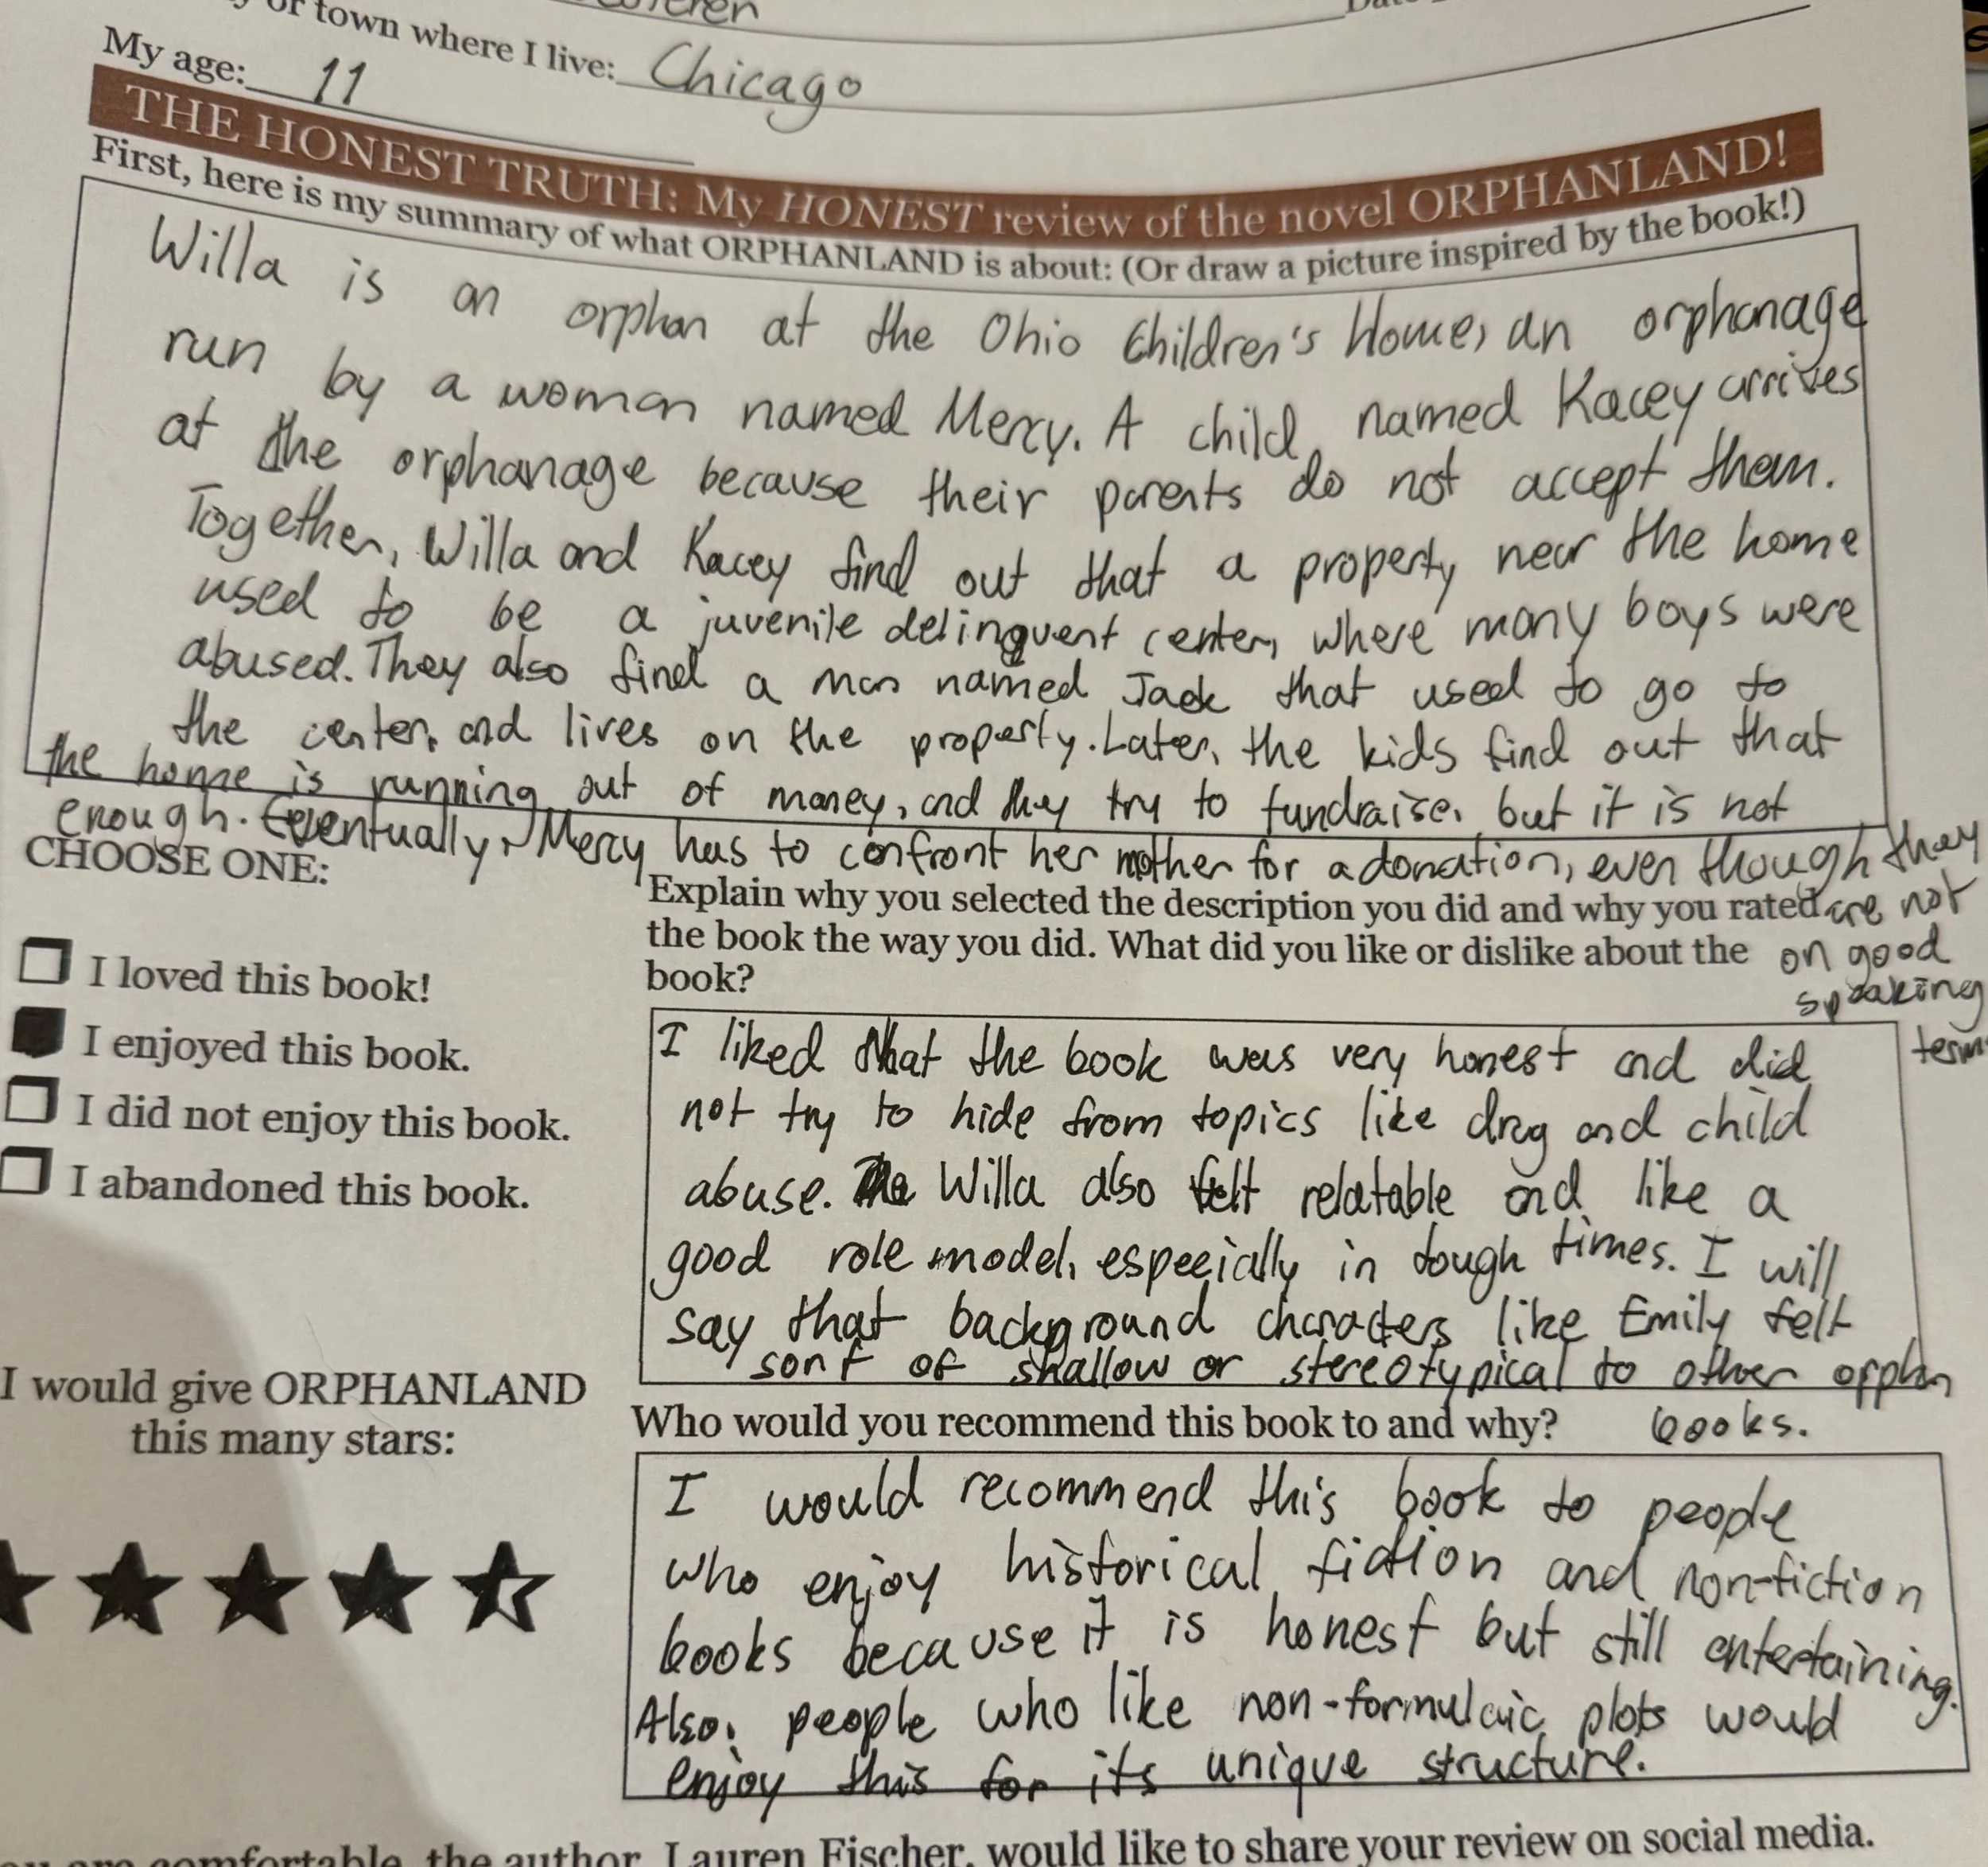 or town where I live: Chicago
My age: 11
THE HONEST TRUTH: My HONEST review of the novel ORPHANLAND!
First, here is my summary of what ORPHANLAND is about: (Or draw a picture inspired by the book!)
Willa is an orphan at the Ohio Children's Home, an orphanage
run by a woman named Mercy. A child, named Kacey arrives
at the orphanage because their parents do not accept them.
Together, Willa and Kacey find out that a property near the home
used to be a juvenile delinquent center, where many boys were
abused. They also find a man named Jack that used to go to
the center, and lives on the property. Later, the kids find out that
the home is running out of money, and they try to fundraise, but it is not
enough. Eventually, Mercy has to confront her mother for a donation, even though they
are not
on good
speaking
terms
CHOOSE ONE:
I loved this book!
I enjoyed this book.
I did not enjoy this book.
I abandoned this book.
Explain why you selected the description you did and why you rated
the book the way you did. What did you like or dislike about the
book?
I liked that the book was very honest and did
not try to hide from topics like drug and child
abuse. Willa also felt relatable and like a
good role model, especially in tough times. I will
say that background characters like Emily felt
sort of shallow or stereotypical to other orphan
books.
I would give ORPHANLAND
this many stars:
Who would you recommend this book to and why?
I would recommend this book to people
who enjoy historical fiction and non-fiction
books because it is honest but still entertaining.
Also, people who like non-formulaic plots would
enjoy this for its unique structure.
comfortable, the author, Lauren Fischer, would like to share your review on social media.